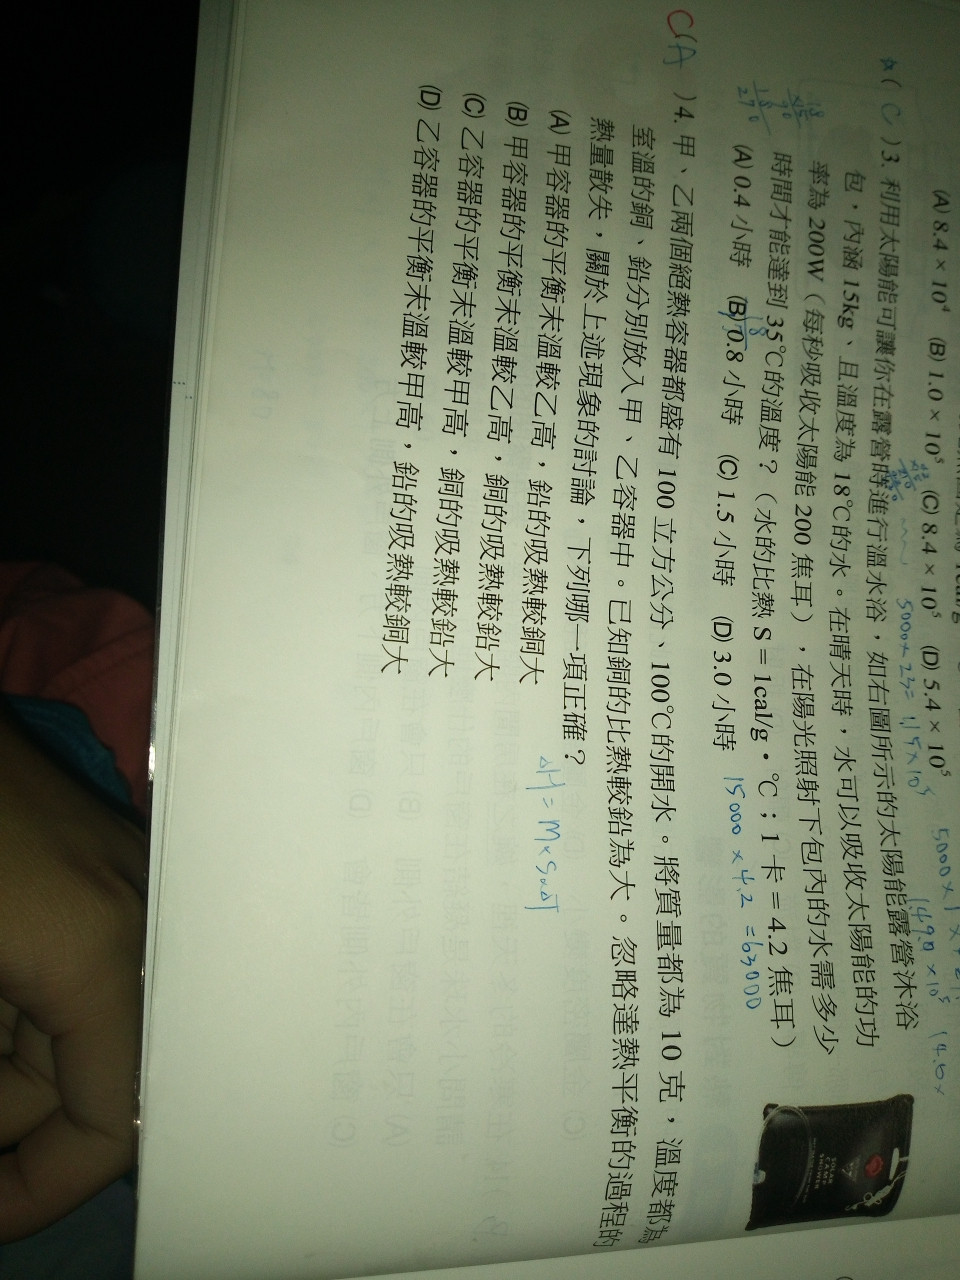 (A) 8.4 × 10⁴ (B) 1.0 × 10⁵ (C) 8.4 × 10⁵ (D) 5.4 × 10⁵
5000×23=1.15×10⁵
( C )3. 利用太陽能可讓你在露營時進行溫水浴，如右圖所示的太陽能露營沐浴
包，內涵 15kg、且溫度為 18℃的水。在晴天時，水可以吸收太陽能的功
率為 200W（每秒吸收太陽能 200 焦耳），在陽光照射下包內的水需多少
時間才能達到 35℃的溫度？（水的比熱 S = 1cal/g・℃；1 卡 = 4.2 焦耳）
(A) 0.4 小時 (B) 0.8 小時 (C) 1.5 小時 (D) 3.0 小時
15000 × 4.2 = 63000
C(A )4. 甲、乙兩個絕熱容器都盛有 100 立方公分、100℃的開水。將質量都為 10 克，溫度都為
室溫的銅、鉛分別放入甲、乙容器中。已知銅的比熱較鉛為大。忽略達熱平衡的過程的
熱量散失，關於上述現象的討論，下列哪一項正確？
ΔH = M×S×ΔT
(A) 甲容器的平衡末溫較乙高，鉛的吸熱較銅大
(B) 甲容器的平衡末溫較乙高，銅的吸熱較鉛大
(C) 乙容器的平衡末溫較甲高，銅的吸熱較鉛大
(D) 乙容器的平衡末溫較甲高，鉛的吸熱較銅大
SOLAR
CAMP
SHOWER